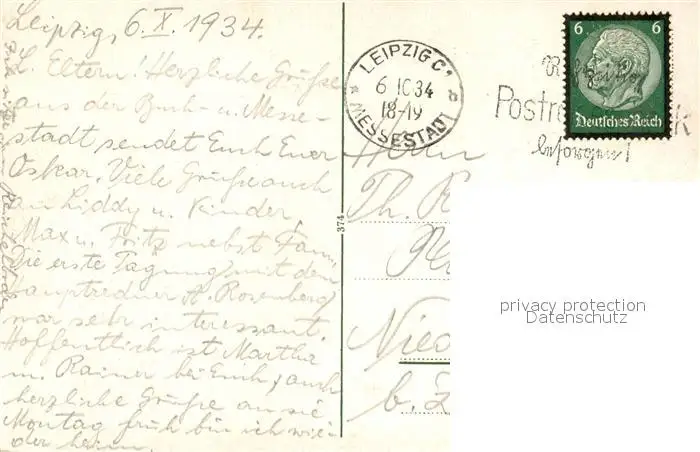 Leipzig, 6.X.1934.
L. Eltern! Herzliche Grüße
aus der Buch- u. Messe-
stadt sendet Euch Euer
Oskar. Viele Grüße auch
an Liddy u. Kinder,
Max u. Fritz nebst Fam.
Die erste Tagung mit dem
Hauptredner A. Rosenberg
war sehr interessant.
Hoffentlich ist Martha
m. Rainer bei Euch, auch
herzliche Grüße an sie
Montag früh bin ich wie-
der heim.
374
LEIPZIG C1
6 10 34
18-19
MESSESTADT
Postr
besorgen!
6 6
Deutsches Reich
Herrn
Th.
Nied
b.
privacy protection
Datenschutz